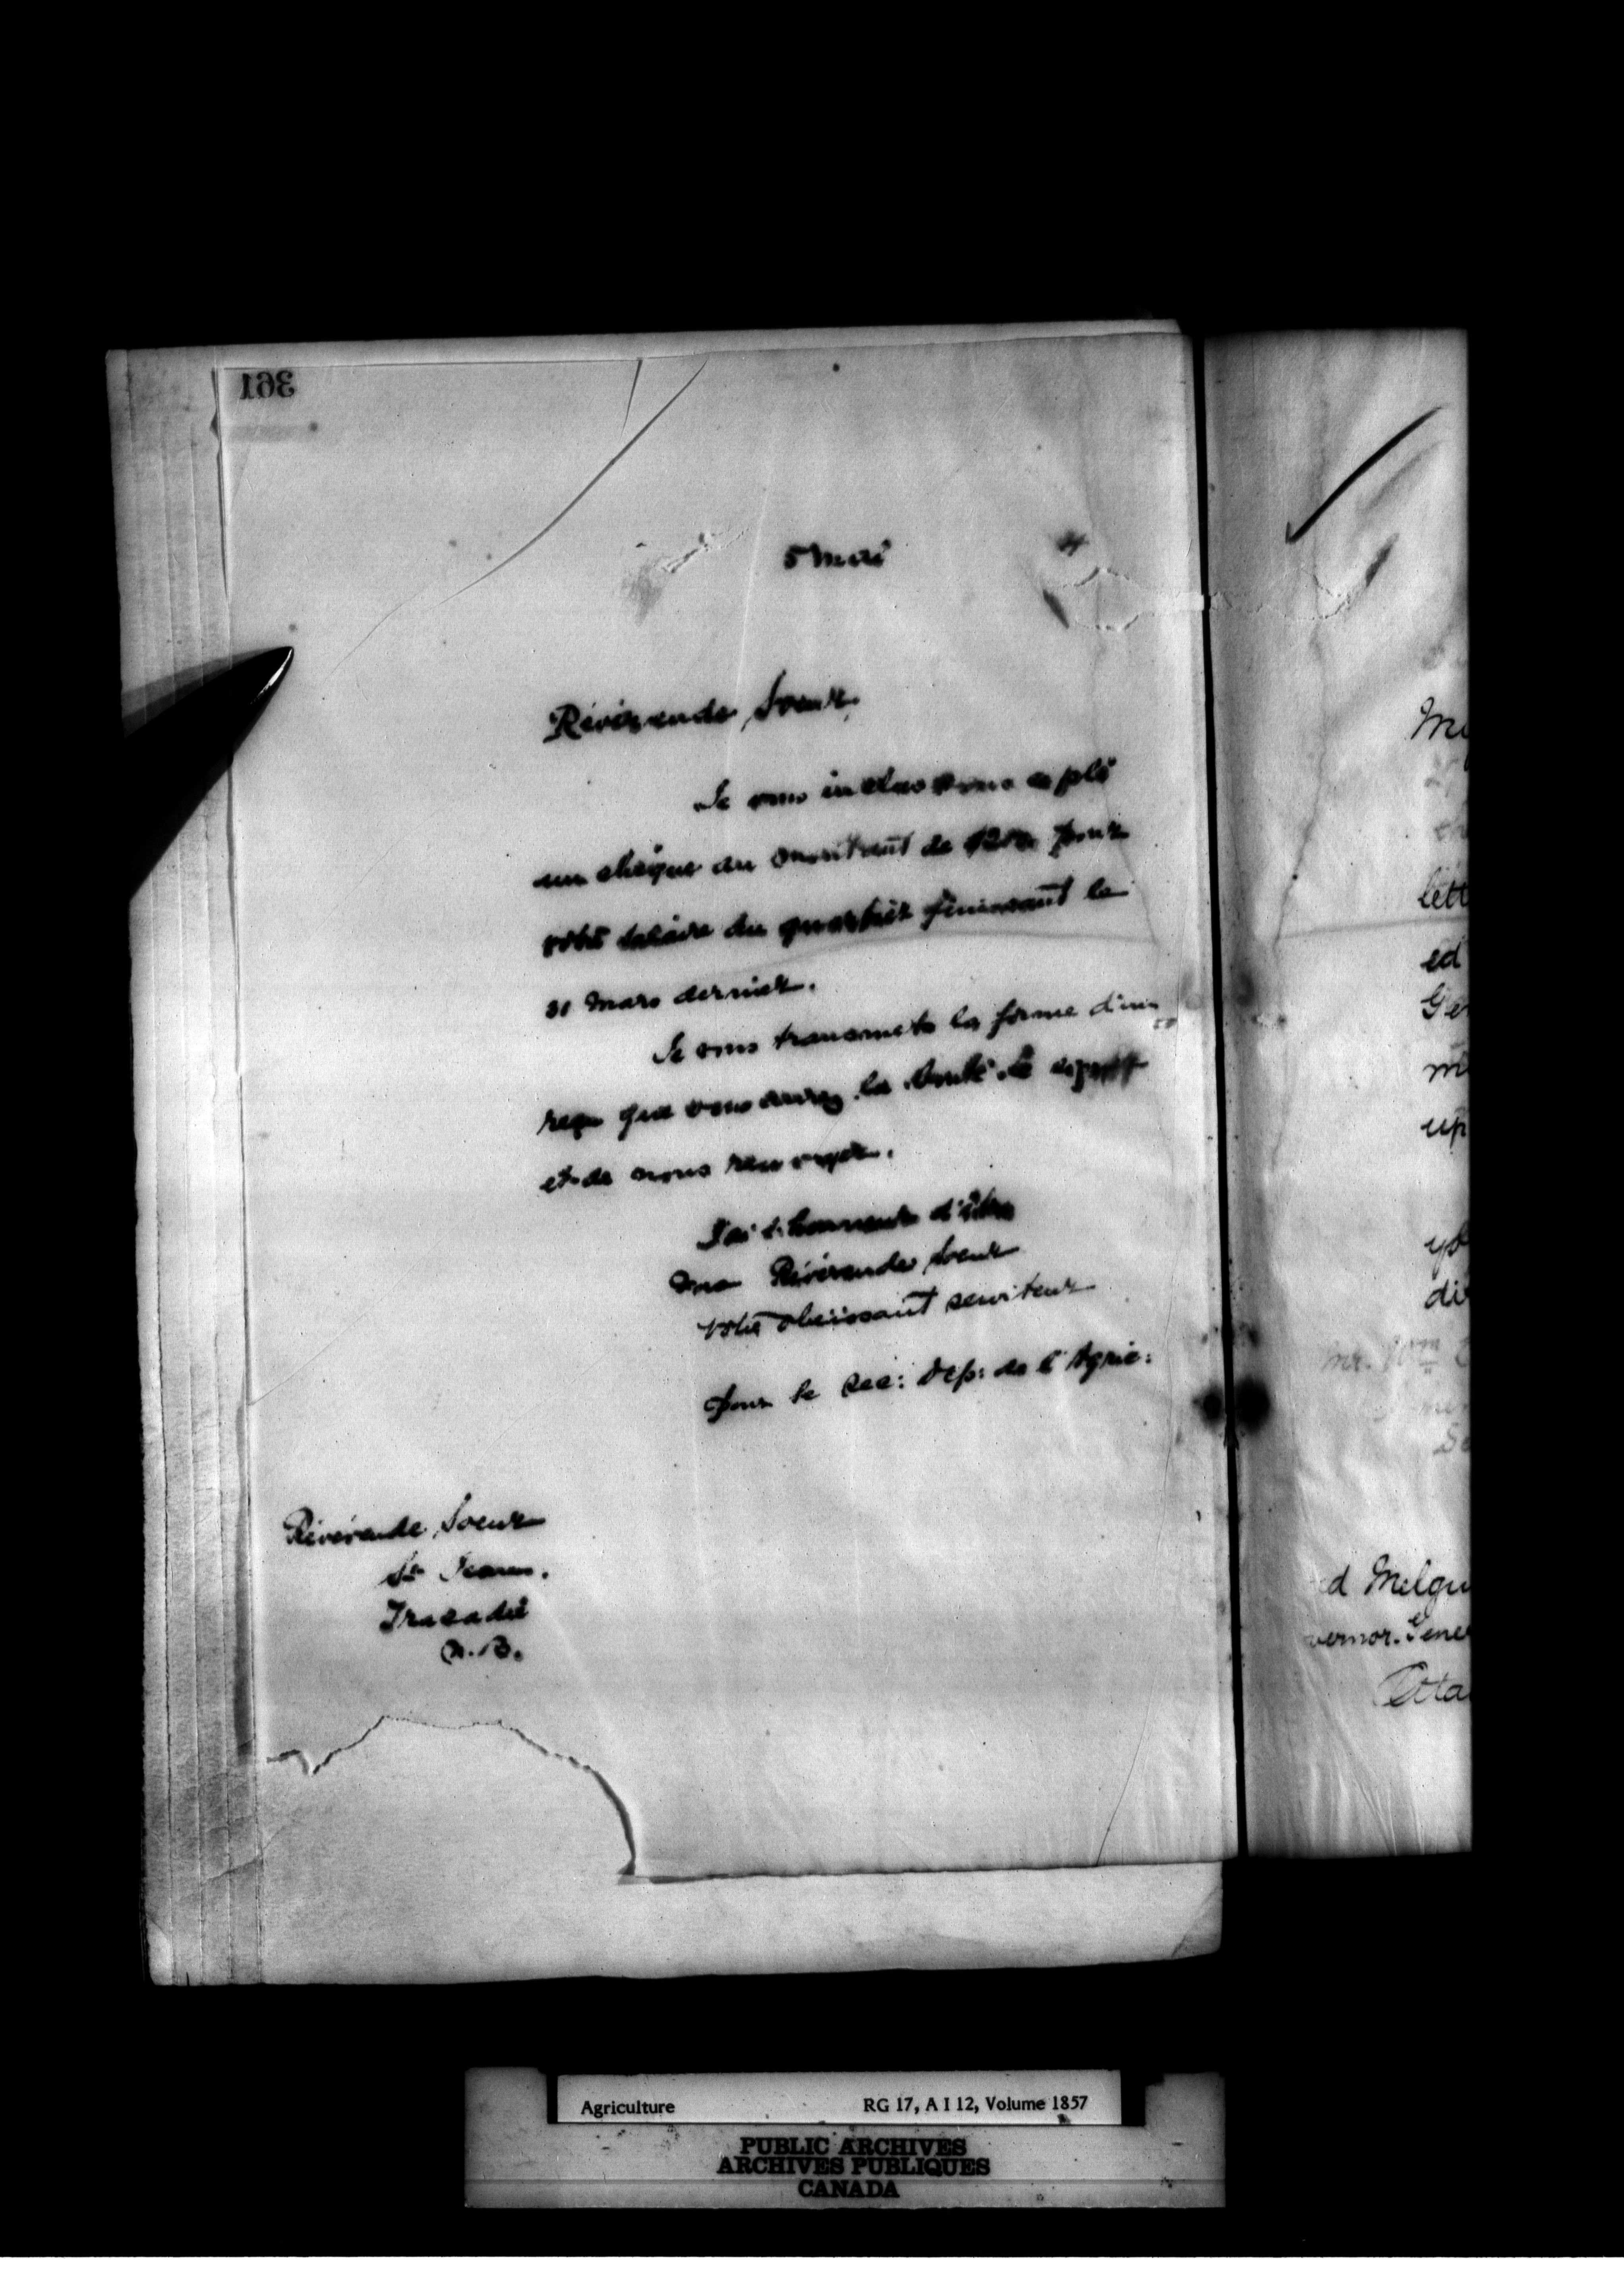 361
5 Mai 4
Révérende Soeur,
Je vous inclus sous ce pli
un chèque au montant de pour
votre salaire du quartier finissant le
31 Mars dernier.
Je vous transmets la forme d'un
reçu que vous aurez la bonté de signer
et de nous renvoyer.
J'ai l'honneur d'être
ma Révérende Soeur
votre obeissant serviteur
pour le sec: Dep: de l'Agric:
Révérende Soeur
St Jean.
Tracadie
N.B.
lett
ed
Ger
up
di
Mr. Wm
d Melgu
vernor. Gener
Otta
Agriculture RG 17, A I 12, Volume 1857
PUBLIC ARCHIVES
ARCHIVES PUBLIQUES
CANADA